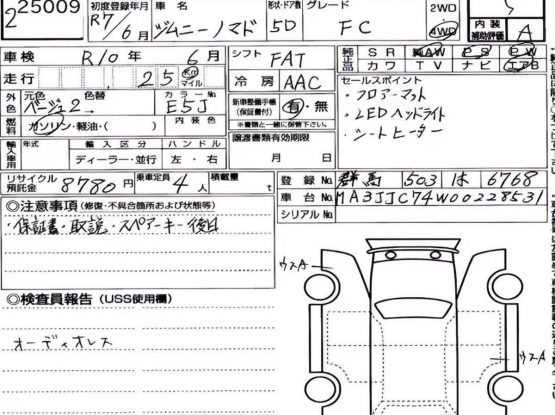 225009 初度登録年月 R7/6月 車名 ジムニーノマド 形状・ドア数 5D グレード FC 2WD 4WD 内装補助評価 A
車検 R10年 6月 シフト FAT 純正品 SR 純AW PS PW
カワ TV ナビ エアB
走行 25 km マイル 冷房 AAC セールスポイント
・フロアーマット
・LEDヘッドライト
・シートヒーター
外色 元色 ベージュ2 色替 カラーNo. E5J 新車整備手帳(保証書付) 有・無
※書類と一緒に保管下さい。
燃料 ガソリン・軽油・( ) 内装色 譲渡書類有効期限
月 日
輸入車用 年式 輸入区分 ディーラー・並行 ハンドル 左・右
リサイクル預託金 8780円 乗車定員 4人 積載量 t
登録No. 群馬 503 ほ 6768
車台No. MA3JJC74W00228531
シリアルNo.
◎注意事項(修復・不具合箇所および状態等)
・保証書・取説・スペアーキー後日
ウスA
◎検査員報告(USS使用欄)
オーディオレス
ウスA